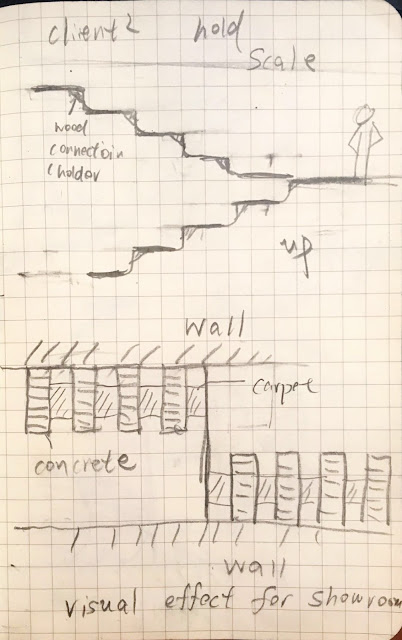 client 2 hold
Scale
wood
connectoin
(holder
up
wall
carpet
concrete
wall
visual effect for showroom